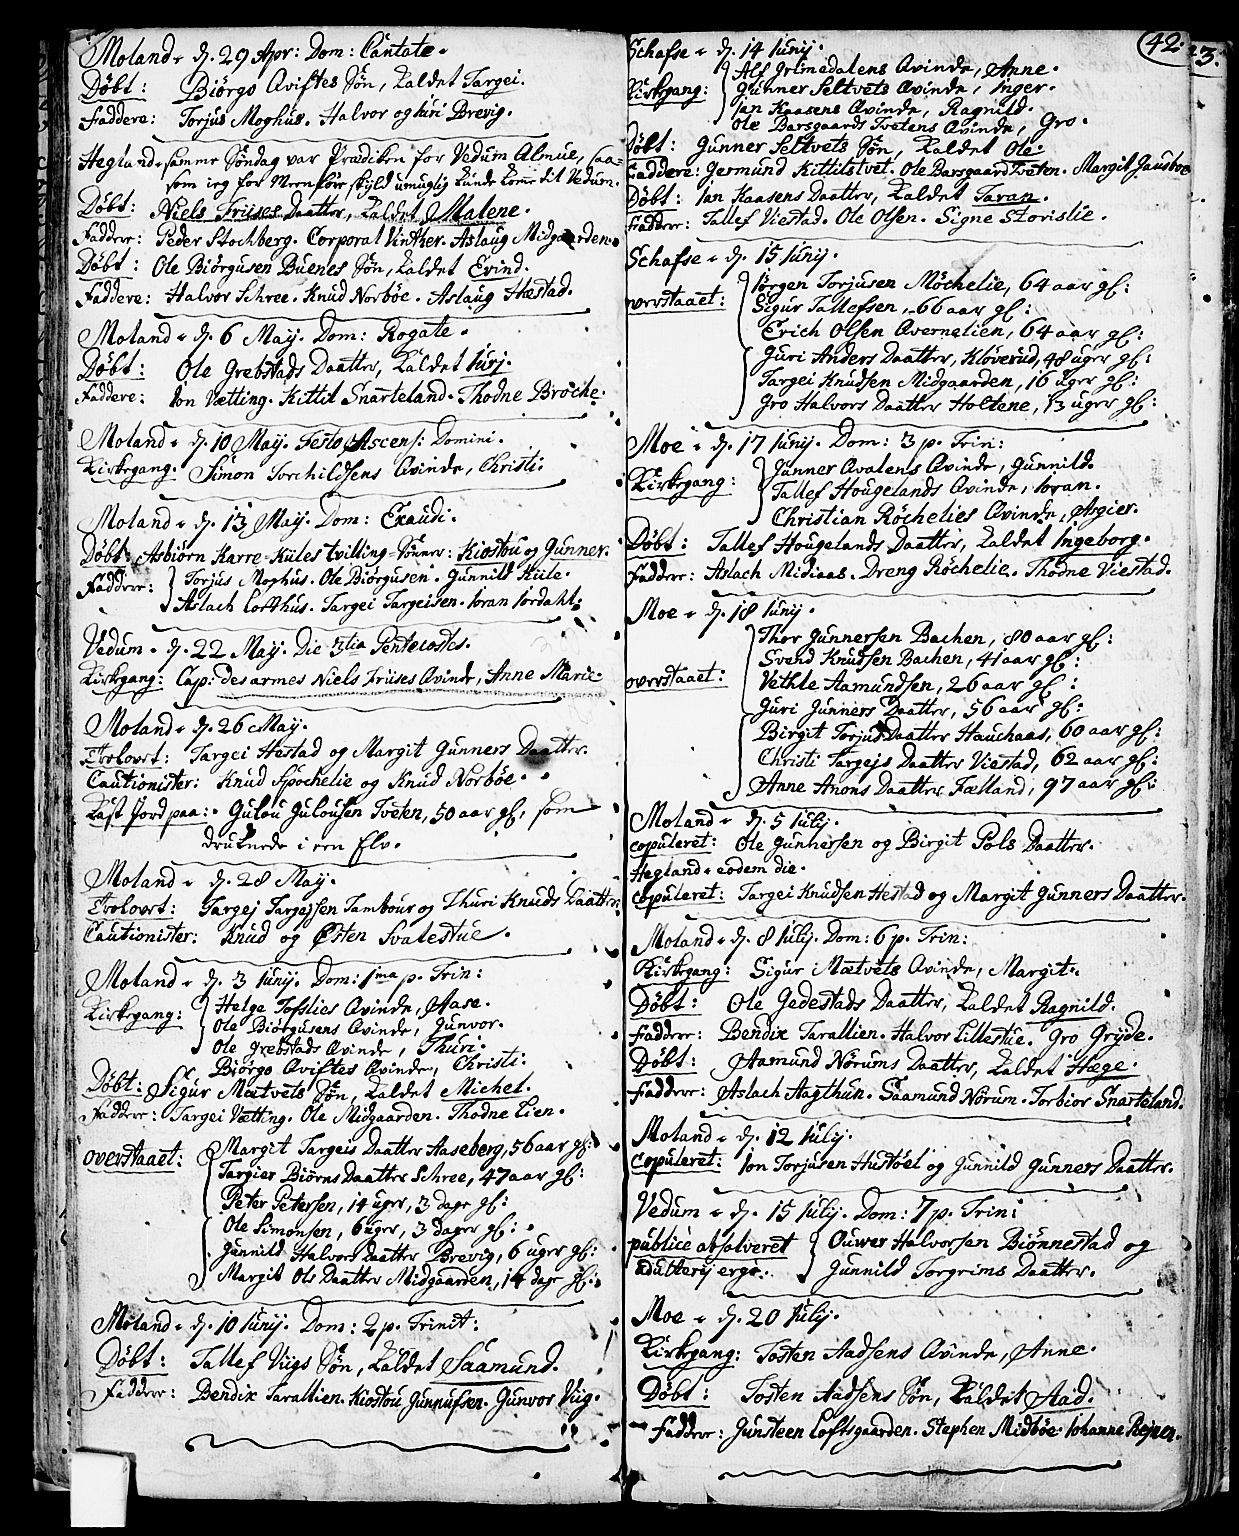 Moland d. 29 Apr: Dom: Cantate.
Döbt: Biörgo Qvistes Sön, kaldet Targei.
Faddere: Torjus Moghus. Halvor og Iuri Brevig.
Hegland samme Söndag var Prædiken for Vedum Almue, saa-
som ieg for Meenföre skyld umuglig kunde komme til Vedum.
Döbt: Niels Friises Daatter, kaldet Malene.
Faddere: Peder Stochberg. Corporal Vinther. Aslaug Midgaarden.
Döbt: Ole Biörgusen Buenes Sön, kaldet Evind.
Faddere: Halvor Schree. Knud Norböe. Aslaug Hæstad.
Moland d. 6 Maij. Dom: Rogate.
Döbt: Ole Grebstads Daatter, kaldet Iurj.
Faddere: Ion Vætting. Kittil Snarteland. Thodne Bröche.
Moland d. 10 Maij. Festo Ascens: Domini.
Kirkegang. Simon Torchildsens Qvinde, Christi.
Moland d. 13 Maij. Dom: Exaudi.
Döbt: Asbiörn Karre-Kiiles tvilling-Sönner: Kiostou og Gunner.
Faddere: Torjus Moghus. Ole Biörgusen. Gunnild Kiile.
Aslach Lofthus. Targei Targeisen. Ioran Iordahl.
Vedum d. 22 Maij. Die 3tia Pentecostes.
Kirkegang: Cap: desarmes Niels Friises Qvinde, Anne Marie
Moland d. 26 Maij.
Trolovet: Targei Hestad og Margit Gunners Daatter.
Cautionister: Knud Spochelie og Knud Norböe.
Kast Jord paa: Gulou Gulousen Tveten, 50 aar gl, som
druknede i een Elv.
Moland d. 28 Maij.
Trolovet: Targej Targejsen Tambour og Thuri Knuds Daatter.
Cautionister: Knud og Östen Svalestue.
Moland d. 3 Iunij. Dom: 1ma p. Trin:
Kirkegang: Helge Fosslies Qvinde, Aase.
Ole Biörgusens Qvinde, Gunvor.
Ole Grebstads Qvinde, Thuri.
Biörgo Qvistes Qvinde, Christi:
Döbt: Sigur Mætvets Sön, kaldet Michel.
Faddere: Targei Vætting. Ole Midgaarden. Thodne Lien.
overstaaet: Margit Targeis Daatter Aaseberg, 56 aar gl:
Targier Biörns Daatter Schree, 47 aar gl:
Peter Petersen, 14 uger, 3 dage gl:
Ole Simonsen, 6 uger, 3 dager gl:
Gunnild Halvors Daatter Brevig, 6 uger gl:
Margit Ols Daatter Midgaarden, 14 dage gl:
Moland d. 10 Iunij. Dom: 2 p. Trinit:
Döbt: Tallef Viigs Sön, kaldet Saamund.
Faddere: Bendix Tarallien. Kiostou Gunnufsen. Gunvor Viig.
42.
3.
Schafse d. 14 Iunij.
Kirkegang: Alf Grimedalens Qvinde, Anne.
Gunner Seltvets Qvinde, Inger.
Ian Kaasens Qvinde, Ragnild.
Ole Barsgaards Tvetens Qvinde, Gro.
Döbt: Gunner Seltvets Sön, kaldet Ole.
Faddere: Germund Kittilstvet. Ole Barsgaard Tveten. Margit
Döbt: Ian Kaasens Daatter, kaldet Taran.
Faddere: Tallef Viestad. Ole Olsen. Signe Storislie.
Schafse d. 15 Iunij.
overstaaet: Iörgen Torjusen Möchelie, 64 aar gl:
Sigur Tallefsen, 66 aar gl:
Erich Olsen Qvernelien, 64 aar gl:
Guri Anders Daatter, Klöverud, 48 uger gl:
Targei Knudsen Midgaarden, 16 uger gl:
Gro Halvors Daatter Holtene, 13 uger gl:
Moe d. 17 Iunij. Dom: 3 p. Trin:
Kirkegang: Gunner Qvalens Qvinde, Gunnild.
Tallef Hougelands Qvinde, Ioran.
Christian Röchelies Qvinde, Argier.
Döbt: Tallef Hougelands Daatter, kaldet Ingeborg.
Faddere: Aslach Midiaas. Dreng Röchelie. Thodne Viestad.
Moe d. 18 Iunij.
overstaaet: Thor Gunnersen Bachen, 80 aar gl:
Svend Knudsen Bachen, 41 aar gl:
Vethle Aamundsen, 26 aar gl:
Guri Gunners Daatter, 56 aar gl:
Birgit Torjus Daatter Hauchaas, 60 aar gl:
Christi Targejs Daatter Viestad, 62 aar gl:
Anne Anons Daatter Fælland, 97 aar gl:
Moland d. 5 Iulij.
copuleret: Ole Gunnersen og Birgit Pols Daatter.
Hegland eodem die.
Copuleret: Targei Knudsen Hestad og Margit Gunners Daatter.
Moland d. 8 Iulij. Dom: 6 p. Trin:
Kirkegang: Sigur Mætvets Qvinde, Margit.
Döbt: Ole Gedestads Daatter, kaldet Ragnild.
Faddere: Bendix Tarallien. Halvor Lillestue. Gro Gryde.
Döbt: Aamund Nörums Daatter, kaldet Hæge.
Faddere: Aslach Aagthun. Saamund Nörum. Torbior Snarteland.
Moland d. 12 Iulij.
Copuleret: Ion Torjusen Hustöel og Gunnild Gunners Daatter.
Vedum d. 15 Iulij. Dom: 7 p. Trin:
publice absolveret Ouwer Halvorsen Biönnestad og
adulterij ergo. Gunnild Torgrims Daatter.
Moe d. 20 Iulij.
Kirkegang: Tosten Aadsens Qvinde, Anne.
Döbt: Tosten Aadsens Sön, kaldet Aad.
Faddere: Gunsteen Loftsgaarden. Stephen Midböe. Iohanne